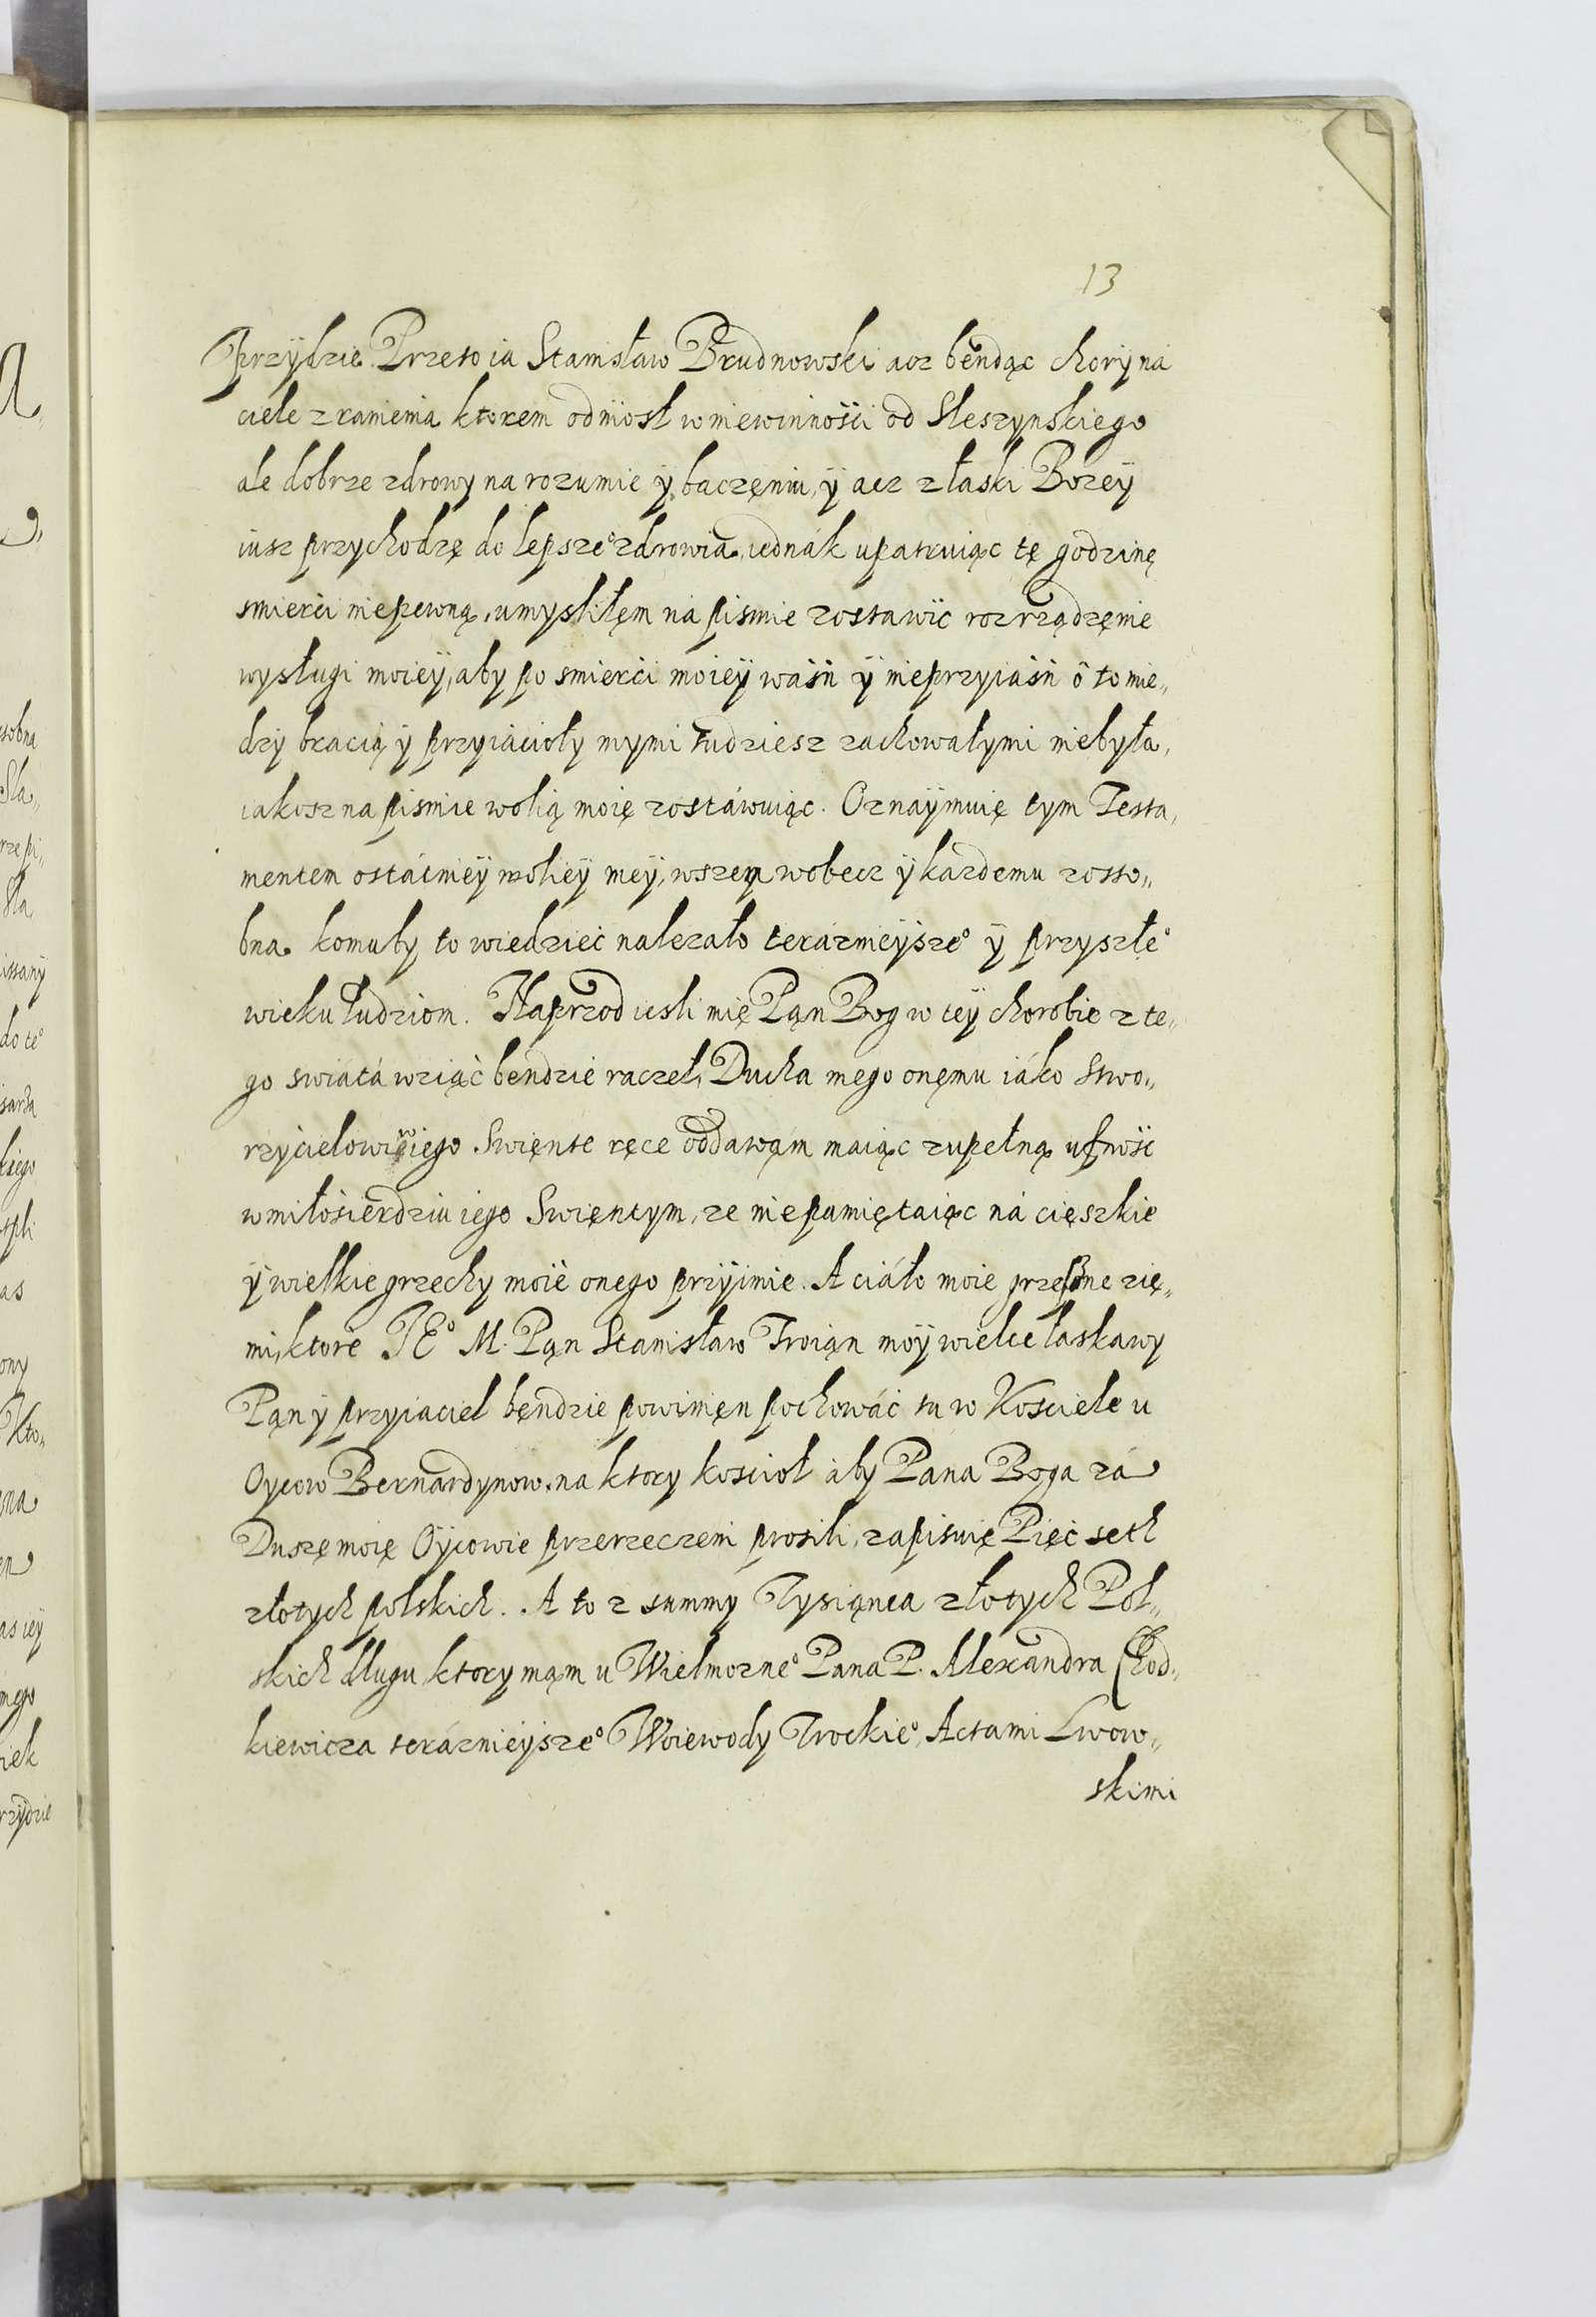 13
przÿdzie. Przeto ia Stanisław Brudnowski acz bendąc chorÿ na
ciele z ranienia ktorem odniosł w niewinności od Sleszynskiego
ale dobrze zdrowy na rozumie ÿ baczęniu, ÿ acz z łaski Bozeÿ
iusz przychodzę do lepsze° zdrowia, iednák upatruiąc tę godzinę
smierći niepewną, umysliłęm na pismie zostawić rozrządzęnie
wysługi moieÿ, aby po smierći moieÿ waśń ÿ nieprzyiaśń o to mie„
dzy bracią ÿ przyiacioły mymi tudziesz zachowałymi niebyła,
iakosz na pismie wolią moię zostáwuiąc. Oznaÿmuię tym Testa„
mentem ostátnieÿ wolieÿ meÿ, wszem wobecz ÿ kazdemu zosso„
bna komuby to wiedzieć nalezało teráznieÿsze° ÿ przyszłe°
wieku ludziom. Naprzod iesli mię Pąn Bog w teÿ chorobie z te„
go swiatá wziąć bendzie raczeł, Ducha mego onęmu iáko stwo„
rzycielowi w iego Swięnte ręce oddawąm maiąc zupełną ufność
w miłosierdziu iego Swięntym, ze niepamiętaiąc ná cięszkie
ÿ wielkie grzechy moie onego przÿimie. A ciáło moie grzeszne zię„
mi, ktore JE° M. Pąn Stanisław Troiąn moÿ wielce łaskawy
Pąn ÿ przyiaciel bęndzie powinięn pochowáć tu w Kosciele u
Oycow Bernardynow, na ktory koscioł aby Pana Boga zá
Duszę moię Oÿcowie przerzeczeni prosili, zapisuię Pięć seth
złotych polskich. A to z summy Tysiąnca złotych Pol„
skich długu ktory mąm u Wielmozne° Pana P. Alexandra Chod„
kiewicza teráznieÿsze° Woiewody Trockie°, Actami Lwow„
skimi